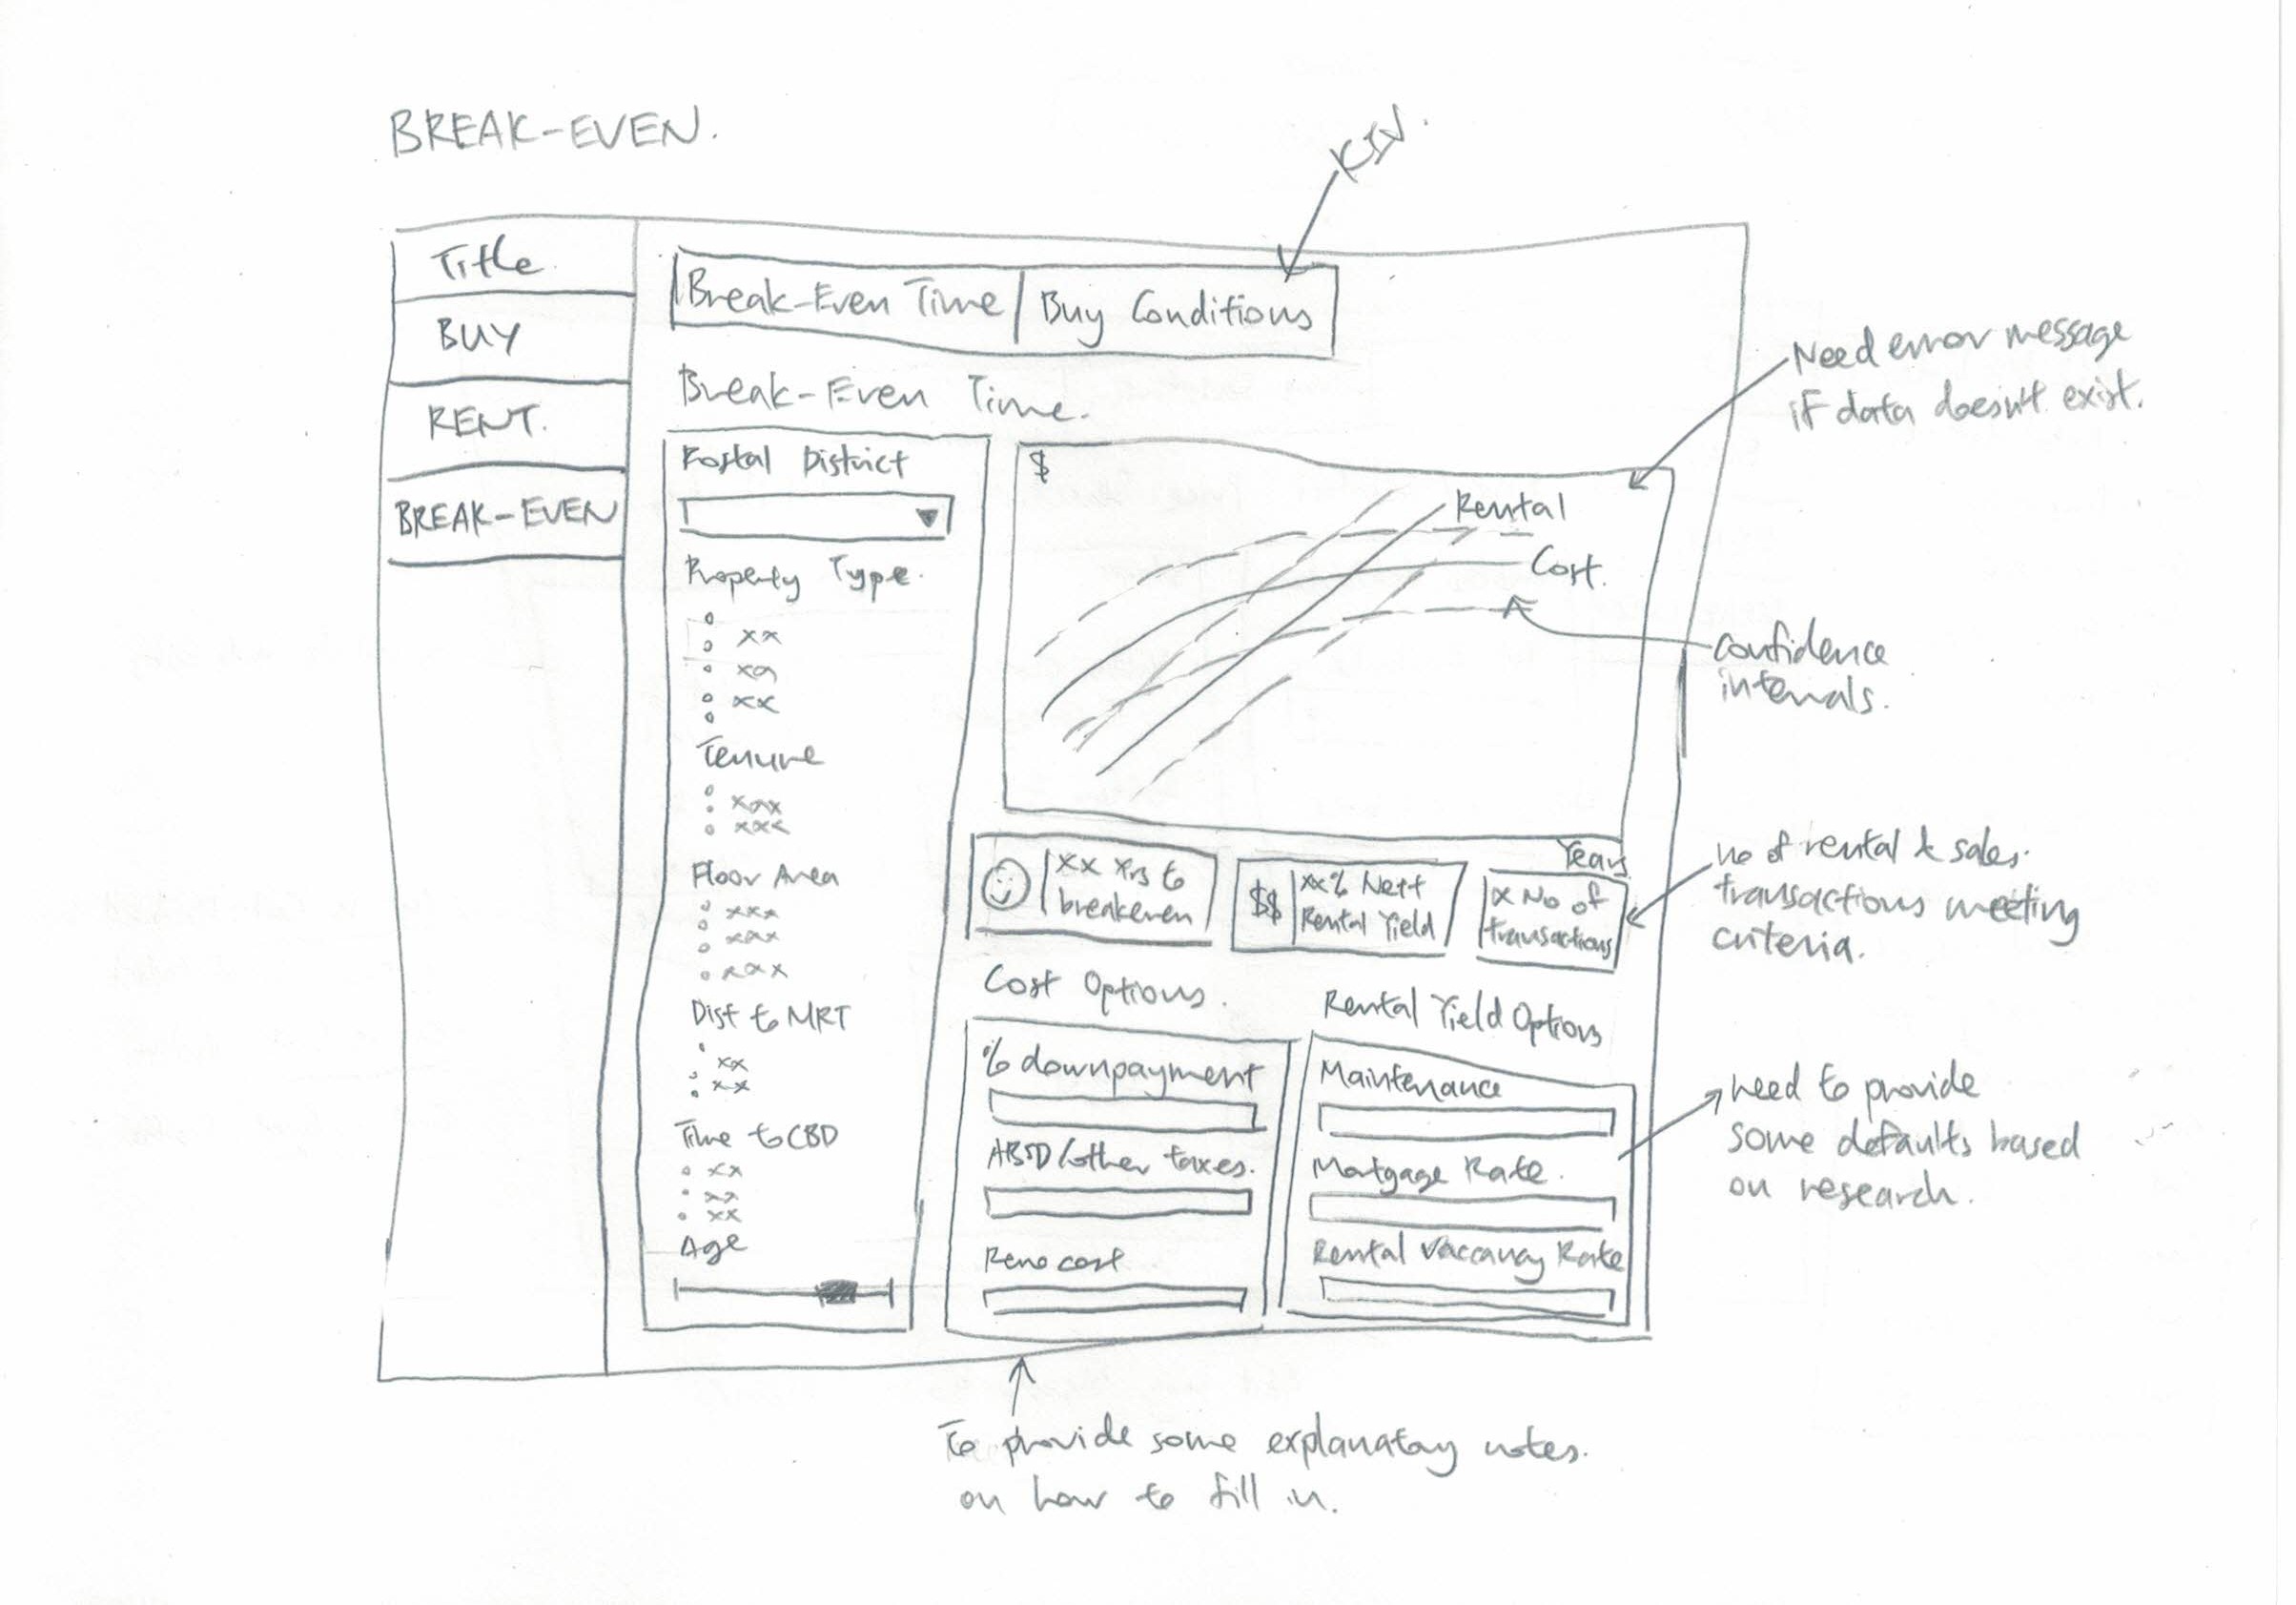 BREAK-EVEN.
KIV.
Title
BUY
RENT.
BREAK-EVEN
Break-Even Time
Buy Conditions
Break-Even Time.
Need error message
if data doesn't exist.
Postal District
Property Type.
xx
xx
xx
Tenure
xxx
xxx
Floor Area
xxx
xxx
xxx
Dist to MRT
xx
xx
Time to CBD
xx
xx
xx
Age
$
Rental
Cost.
Years
confidence
intervals.
xx Yrs to
breakeven
$$
xx% Nett
Rental Yield
x No of
transactions
no of rental & sales.
transactions meeting
criteria.
Cost Options.
% downpayment
ABSD/other taxes.
Reno cost
Rental Yield Options
Maintenance
Mortgage Rate.
Rental Vaccancy Rate
need to provide
some defaults based
on research.
To provide some explanatory notes.
on how to fill in.